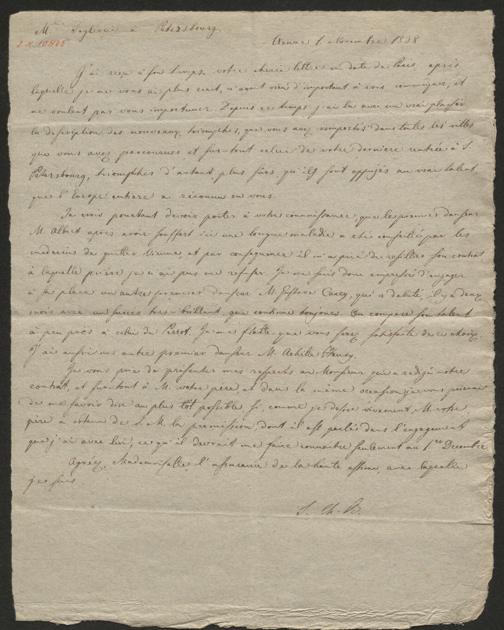 M.lle Taglioni à Petersbourg
Vienne 1 Novembre 1838
J'ai reçu à son temps votre chère lettre en date de Paris, après
laquelle je ne vous ai plus écrit, n'ayant rien d'important à vous communiquer, et
ne voulant pas vous importuner. Depuis ce temps j'ai lu avec un vrai plaisir
la description des nouveaux triomphes, que vous avez remportés dans toutes les villes
que vous avez parcourues et sur-tout celui de votre dernière rentrée à S.
Petersbourg, triomphes d'autant plus sûrs qu'ils sont appuyés au vrai talent
que l'Europe entière a reconnu en vous.
Je vois pourtant devoir porter à votre connaissance que le premier danseur
M. Albert après avoir souffert ici une longue maladie a été conseillé par les
médecins de quitter Vienne, et par conséquence il m'a prié de résilier son contrat
à laquelle prière je n'ai pas pu refuser. Je me suis donc empressé d'engager
à sa place un autre premier danseur M. Gustave Carey, qui a débuté, il y a deux
mois avec un succès très brillant, que continue toujours. On compare son talent
à peu près à celui de Perrot. Je me flatte que vous serez satisfaite de ce choix.
J'ai aussi un autre premier danseur M. Achille
Je vous prie de présenter mes respects au Monsieur qui a rédigé notre
contrat, et surtout à M. votre père et dans la même occasion je vous prierai
de me faire dire au plus tôt possible si, comme je desire vivement, M. votre
père a obtenu de S. M. la permission dont il est parlé dans l'engagement
que j'ai avec lui; ce qu'il devrait me faire connaitre seulement au 1.er Decembre
Agréez, Mademoiselle, l'assurance de la haute estime, avec laquelle
je suis